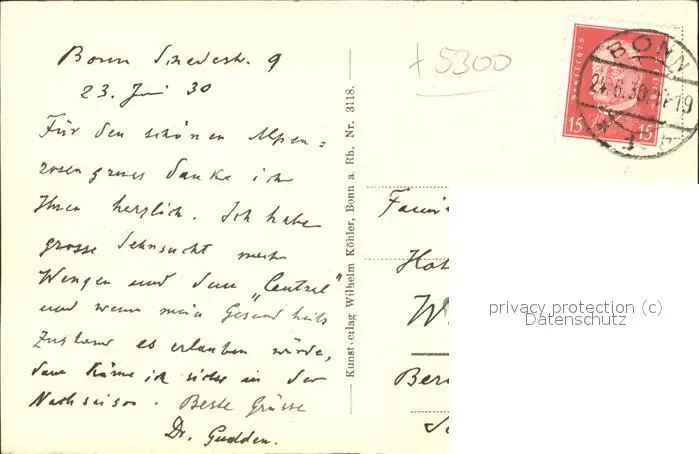 Bonn
23. Juni 30
Für den schönen Alpen=
rosengruss danke ich
Ihnen herzlich. Ich habe
grosse Sehnsucht nach
Wengen und dem "Central"
und wenn mein Gesundheits
Zustand es erlauben würde,
dann käme ich sicher in der
Nachsaison. Beste Grüsse
Dr. Gudden.
Kunstverlag Wilhelm Köhler, Bonn a. Rh. Nr. 3118.
+5300
BONN
24.6.30
15 15
Hot
W
Bern
privacy protection (c)
Datenschutz